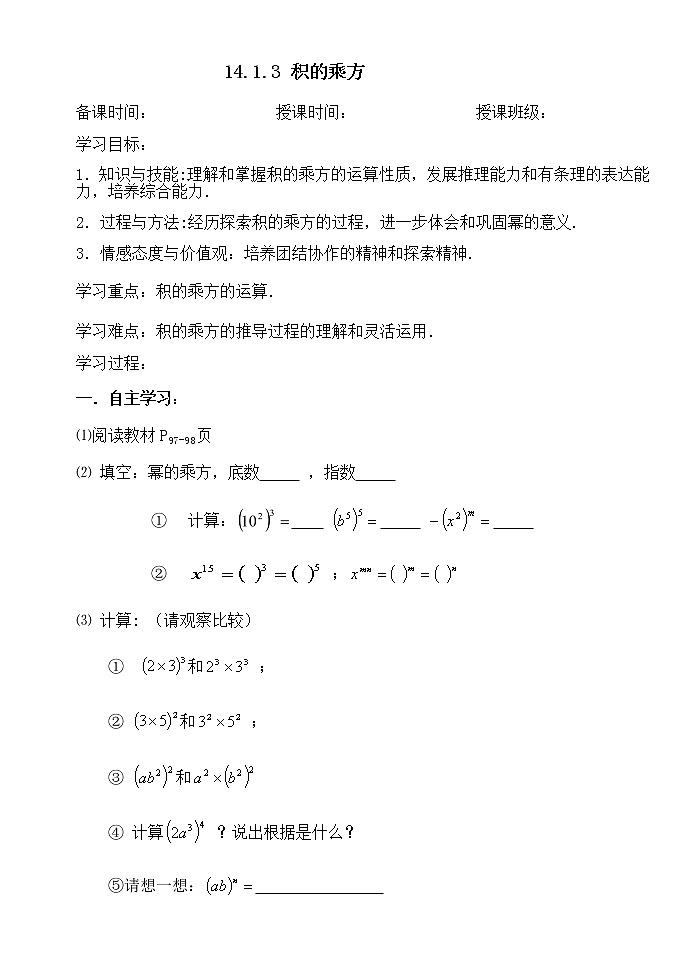 14.1.3 积的乘方
备课时间: 授课时间: 授课班级:
学习目标:
1. 知识与技能:理解和掌握积的乘方的运算性质，发展推理能力和有条理的表达能
力，培养综合能力.
2. 过程与方法:经历探索积的乘方的过程，进一步体会和巩固幂的意义.
3. 情感态度与价值观: 培养团结协作的精神和探索精神.
学习重点: 积的乘方的运算.
学习难点: 积的乘方的推导过程的理解和灵活运用.
学习过程:
一. 自主学习:
⑴阅读教材 P97-98页
⑵ 填空: 幂的乘方，底数_____ ，指数_____
① 计算: (10²)³ =____ (b⁵)⁵ = _____ −(x²)ᵐ = _____
② x¹⁵ = ( )³ = ( )⁵ ; xᵐⁿ = ( )ᵐ = ( )ⁿ
⑶ 计算: (请观察比较)
① (2×3)³和2³×3³ ;
② (3×5)²和3²×5² ;
③ (ab²)²和a²×(b²)²
④ 计算(2a³)⁴ ? 说出根据是什么?
⑤请想一想: (ab)ⁿ = ________________